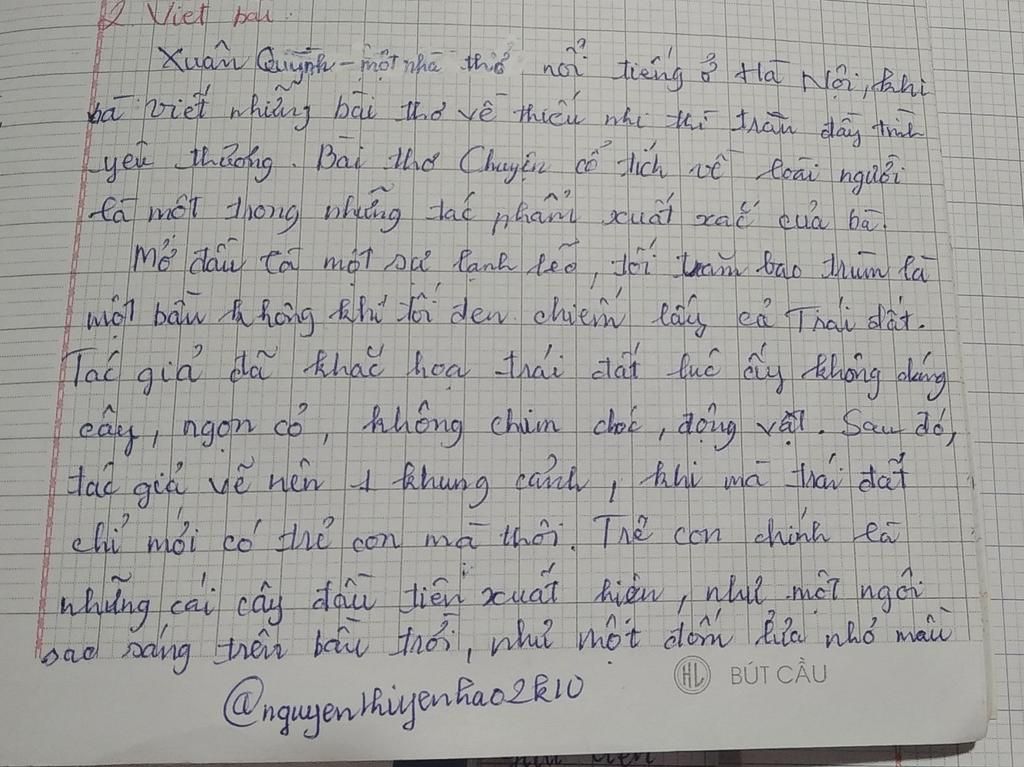 2 Viết bài.
Xuân Quỳnh - một nhà thơ nổi tiếng ở Hà Nội, khi
bà viết những bài thơ về thiếu nhi thì tràn đầy tình
yêu thương. Bài thơ Chuyện cổ tích về loài người
là một trong những tác phẩm xuất xắc của bà.
Mở đầu là một sự lạnh lẽo, tối tràm bao trùm là
một bầu không khí tối đen chiếm lấy cả Trái đất.
Tác giả đã khắc hoạ trái đất lúc ấy không dáng
cây, ngọn cỏ, không chim chóc, động vật. Sau đó,
tác giả vẽ nên 1 khung cảnh, khi mà trái đất
chỉ mới có trẻ con mà thôi. Trẻ con chính là
những cái cây đầu tiên xuất hiện, như một ngôi
sao sáng trên bầu trời, như một đốm lửa nhỏ màu
HL BÚT CẦU
@nguyenthiyenhao2k10